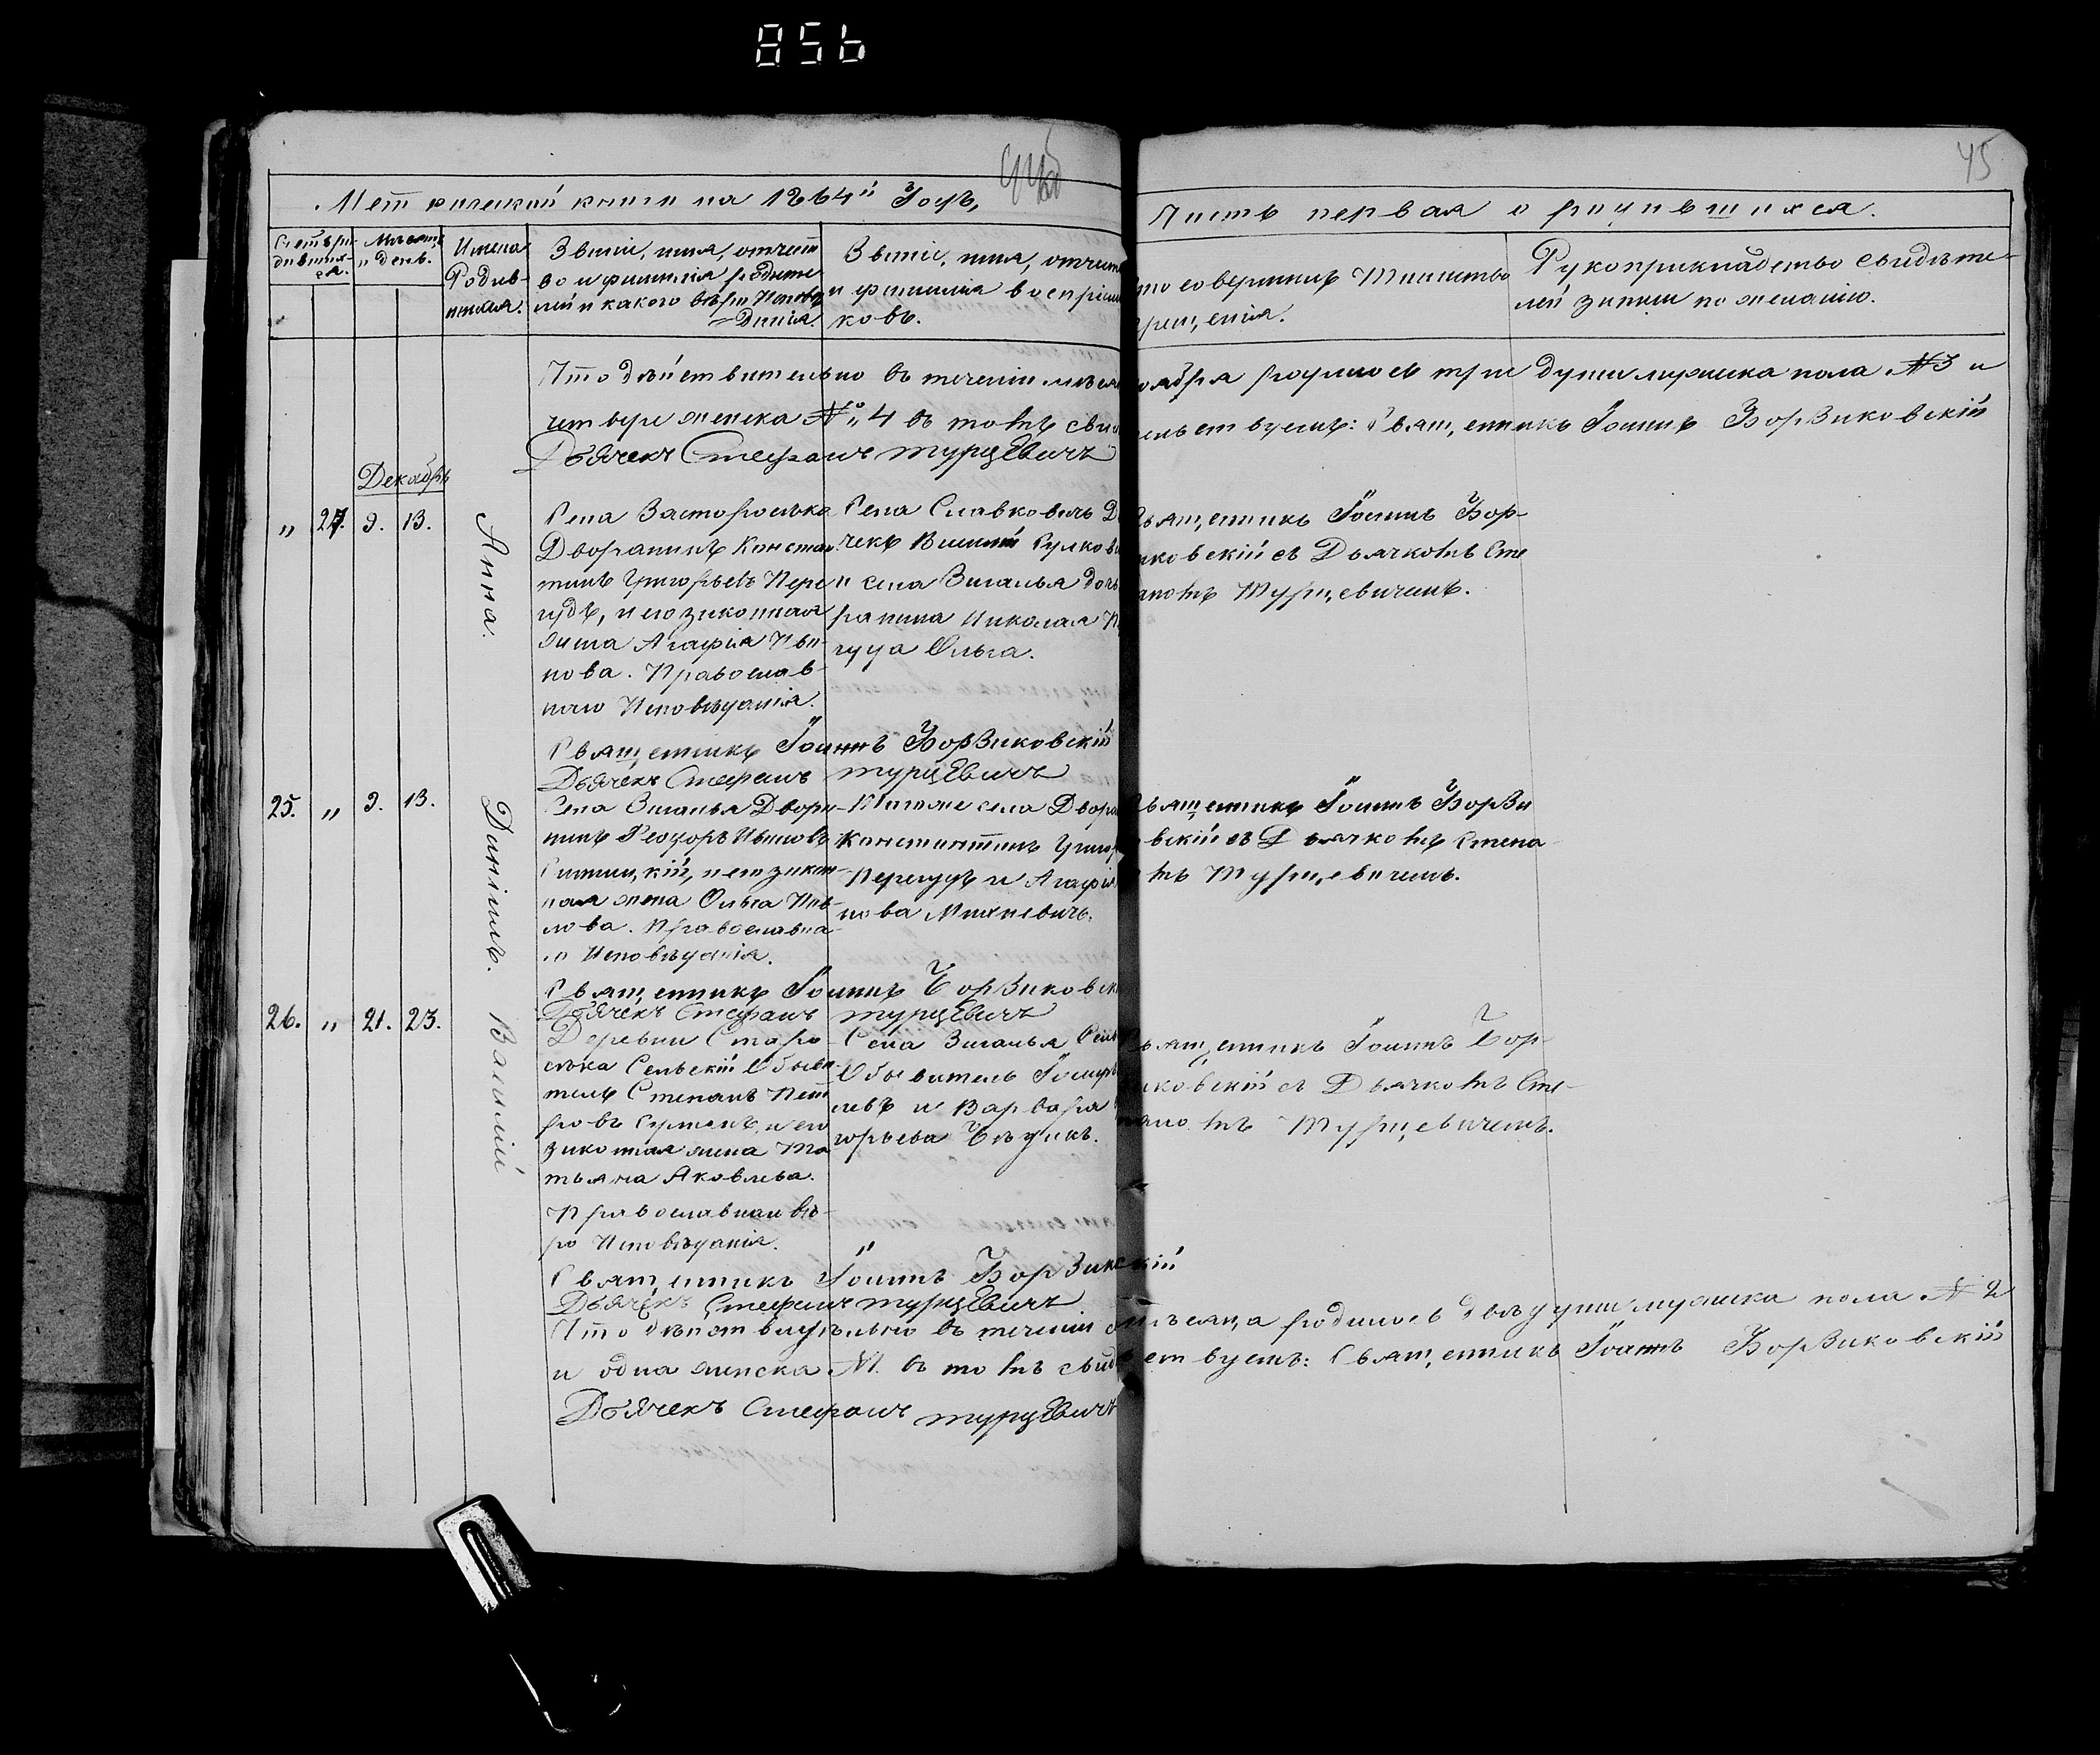 856
45
Метрической книги на 1864й Годъ,
Часть первая о родившихся.
Счетъ ро-
дивших-
ся.
Мѣсяцъ
и день.
Имена
Родив-
шихся.
Званіе, имя, отчест
во и фамилія родите
лей и какого вѣроисповѣ
=данія.
Званіе, имя, отчест
и фамилія воспріем
ковъ.
то совершилъ Таинство
крещенія.
Рукоприкладство свидѣте-
лей записи по желанію.
Что дѣйствительно въ теченіи мѣся
оября родилось три души мужеска пола №3 и
четыре женска №: 4 въ томъ сви
ельствуемъ: Священникъ Іоаннъ Борзаковскій
Дьячекъ Стефанъ Турцевичъ
Декабрь
" 27. 9. 13.
Анна.
Села
Дворянинъ Констан
тинъ Григорьевъ Пере
гудъ, и его законная
жена Агафія Ива-
нова. Православ-
наго Исповѣданія.
Села Славковичъ Д
чекъ Василій
и села Вишалья дочь
рянина Николая П
гуда Ольга.
Священникъ Іоаннъ Бор-
аковскій съ Дьячкомъ Сте
аномъ Турцевичемъ.
Священникъ Іоаннъ Борзаковскій
Дьячекъ Стефанъ Турцевичъ
25. " 9. 13.
Даніилъ.
Села Вишалья Дворя-
нинъ Феодоръ Ивановъ
и его закон-
ная жена Ольга Пав-
лова. Православна-
го Исповѣданія.
Тогоже села Дворя
Константинъ Григор
Перегудъ и Агафія
нова Михневичъ.
Священникъ Іоаннъ Борза
вскій съ Дьячкомъ Стефа-
мъ Турцевичемъ.
Священникъ Іоаннъ Борзаковск
Дьячекъ Стефанъ Турцевичъ
26. " 21. 23.
Василій
Деревни Старо-
сѣка Сельскій Обыва
тель Степанъ Пет
ровъ и его
законная жена Та
тьяна Яковлева.
Православнаго вѣ-
ро Исповѣданія.
Села Вишалья Сель
Обыватель
левъ и Варвара
горьева
Священникъ Іоаннъ Бор-
аковскій съ Дьячкомъ Сте-
фаномъ Турцевичемъ.
Священникъ Іоаннъ Борзаковскій
Дьячекъ Стефанъ Турцевичъ.
Что дѣйствительно въ теченіи
мѣсяца родилось двѣ души мужеска пола № 2
и одна женска №1. въ томъ свид
етвуемъ: Священникъ Іоаннъ Борзаковскій
Дьячекъ Стефанъ Турцевичъ